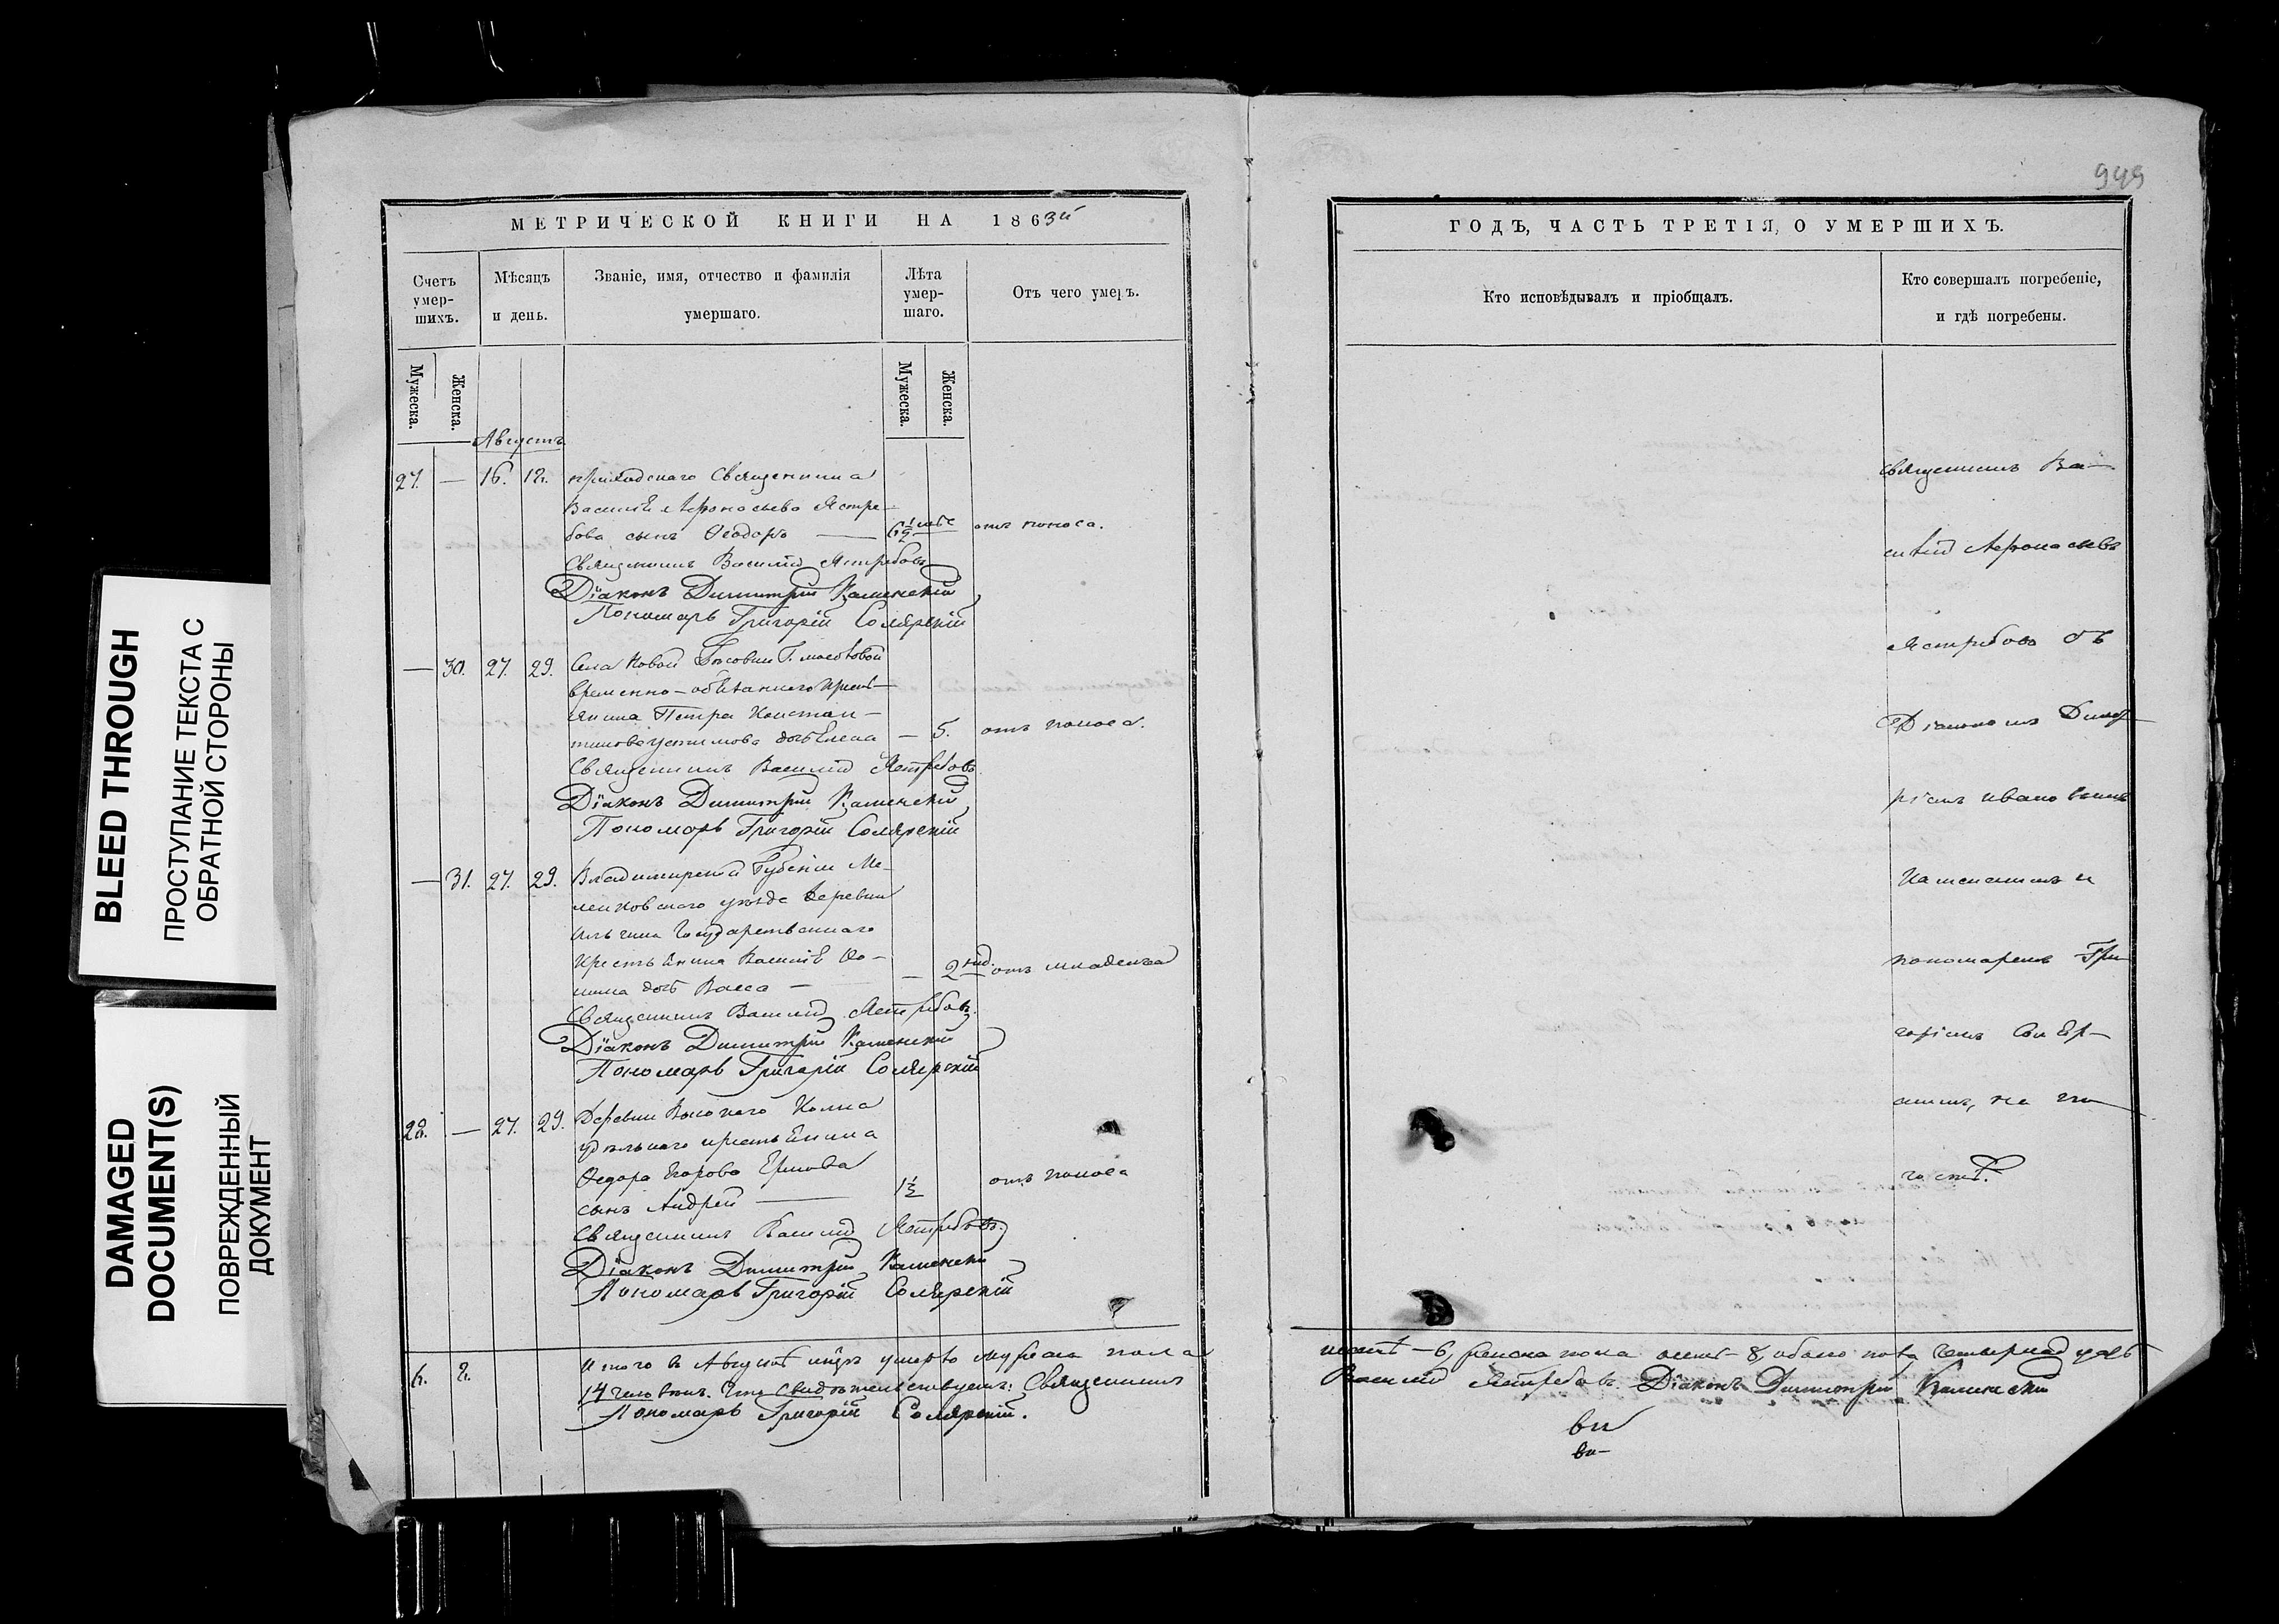 BLEED THROUGH
ПРОСТУПАНИЕ ТЕКСТА С
ОБРАТНОЙ СТОРОНЫ
DAMAGED
DOCUMENT(S)
ПОВРЕЖДЕННЫЙ
ДОКУМЕНТ
МЕТРИЧЕСКОЙ КНИГИ НА 1863й
Счетъ умер-шихъ.
Мѣсяцъ и день.
Званіе, имя, отчество и фамилія умершаго.
Лѣта умер-шаго.
Отъ чего умеръ.
Мужеска.
Женска.
Мужеска.
Женска.
Августъ
27. — 16. 18. приходскаго Священника
Василія Афонасьева Ястре-
бова сынъ Ѳеодоръ — 6½ мѣс отъ поноса.
Священникъ Василій Ястребовъ
Діаконъ Димитрій Каменскій
Пономарь Григорій Солярскій
— 30. 27. 29. Села Новой
временно-обязаннаго крест-
янина Петра Констан-
тинова Устимова дочь Елена — 5. отъ поноса.
Священникъ Василій Ястребовъ
Діаконъ Димитрій Каменскій
Пономарь Григорій Солярскій
— 31. 27. 29. Владимирской Губерніи Ме-
ленковскаго уѣзда деревни
Государственнаго
Крестьянина Василія Ѳо-
мина дочь Васса — — 2 нед. отъ младенч
Священникъ Василій Ястребовъ
Діаконъ Димитрій Каменскій
Пономарь Григорій Солярскій
28. — 27. 29. Деревни Высокаго
удѣльнаго крестьянина
Ѳедора Егорова Ершова
сынъ Андрей — 1½ отъ поноса
Священникъ Василій Ястребовъ
Діаконъ Димитрій Каменскій
Пономарь Григорій Солярскій
6. 8. Итого въ Августѣ мцѣ умерло мужеска пола
14 человѣкъ. Что свидѣтельствуемъ: Священникъ
Пономарь Григорій Солярскій.
949
ГОДЪ, ЧАСТЬ ТРЕТІЯ, О УМЕРШИХЪ.
Кто исповѣдывалъ и пріобщалъ.
Кто совершалъ погребеніе,
и гдѣ погребены.
Священникъ Ва-
силій Афонасьевъ
Ястребовъ съ
Діакономъ Димит-
ріемъ Ивановымъ
Каменскимъ и
пономаремъ Гри-
горіемъ Соляр-
скимъ, на по-
гостѣ.
шесть - 6, женска пола осемь - 8, обоего пола четырнадцать
Василій Ястребовъ. Діаконъ Димитрій Каменскій